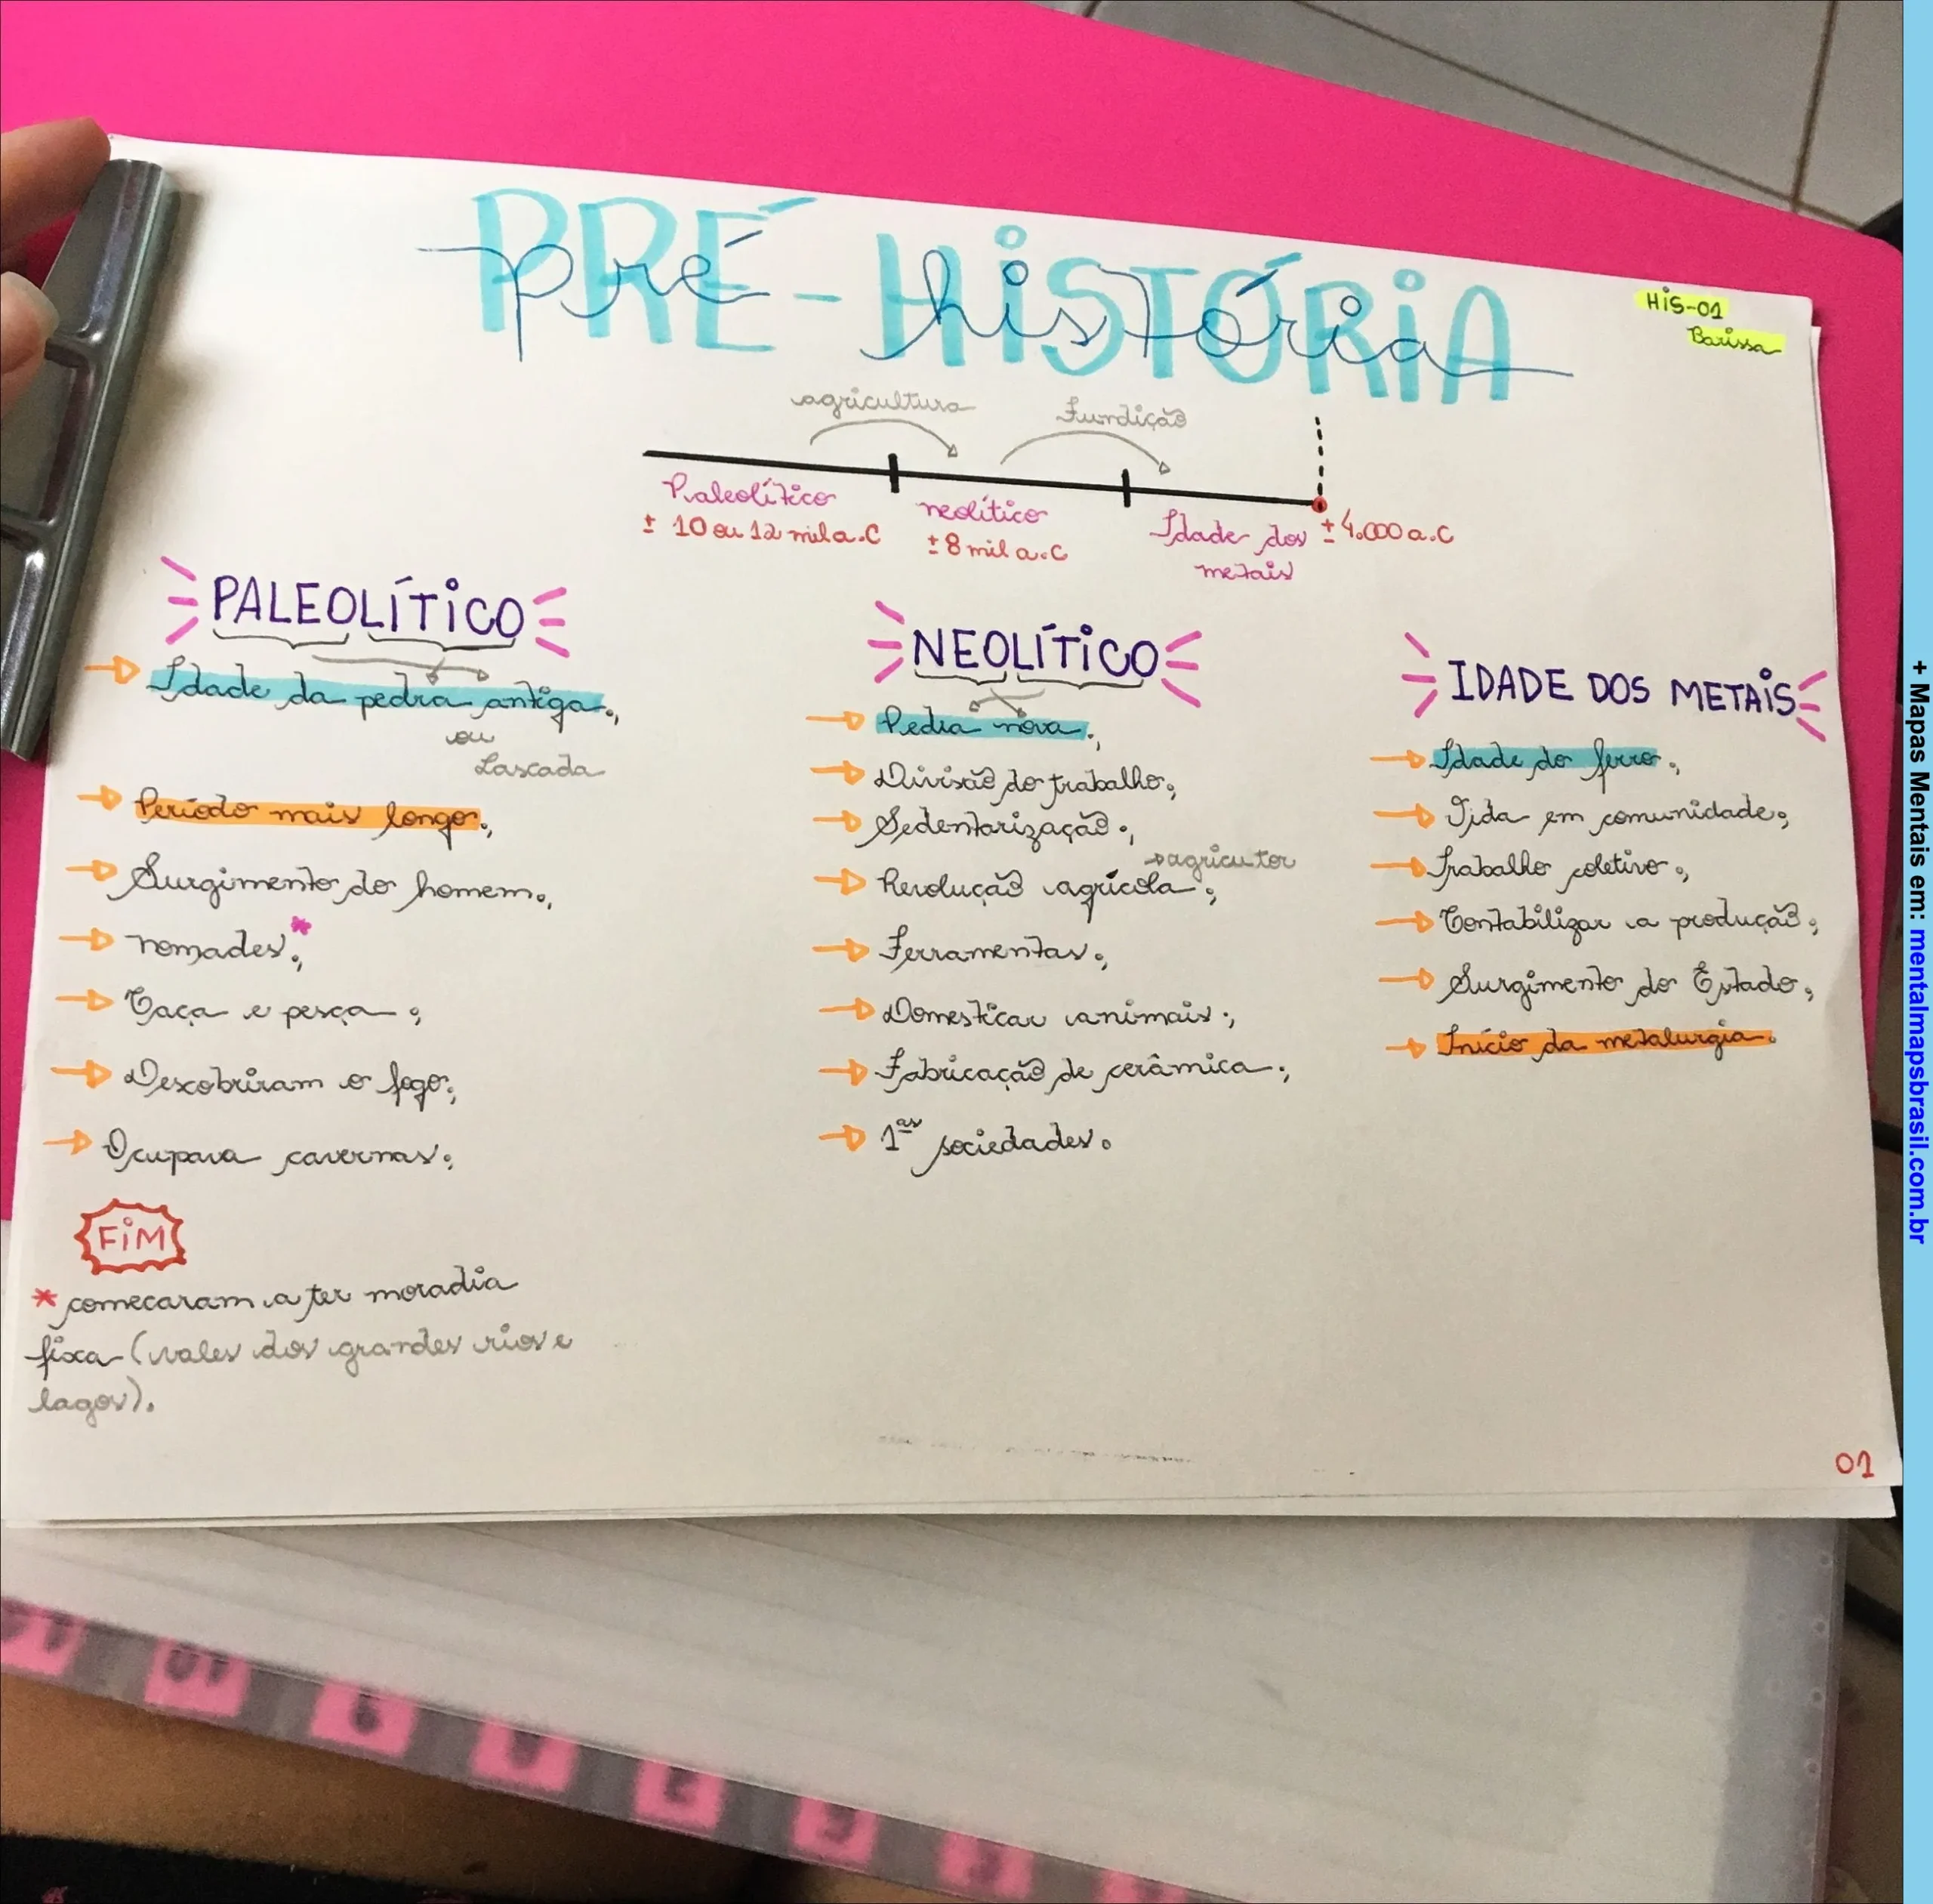 PRÉ-HISTÓRIA
pré história
HIS-01
Barissa
agricultura
Fundição
Paleolítico
± 10 ou 12 mil a.C
neolítico
± 8 mil a.C
Idade dos
metais
± 4.000 a.C
PALEOLÍTICO
Idade da pedra antiga;
ou
Lascada
Período mais longo;
Surgimento do homem;
nomades*;
Caça e pesca;
Descobriram o fogo;
Ocupava cavernas;
FIM
* comecaram a ter moradia
fixa (vales dos grandes rios e
lagos).
NEOLÍTICO
Pedra nova;
Divisão do trabalho;
Sedentarização;
agricutor
Revolução agrícola;
Ferramentas;
Domesticar animais;
Fabricação de cerâmica;
1as sociedades.
IDADE DOS METAIS
Idade do ferro;
Vida em comunidade;
Trabalho coletivo;
Contabilizar a produção;
Surgimento do Estado;
Início da metalurgia.
01
+ Mapas Mentais em: mentalmapsbrasil.com.br